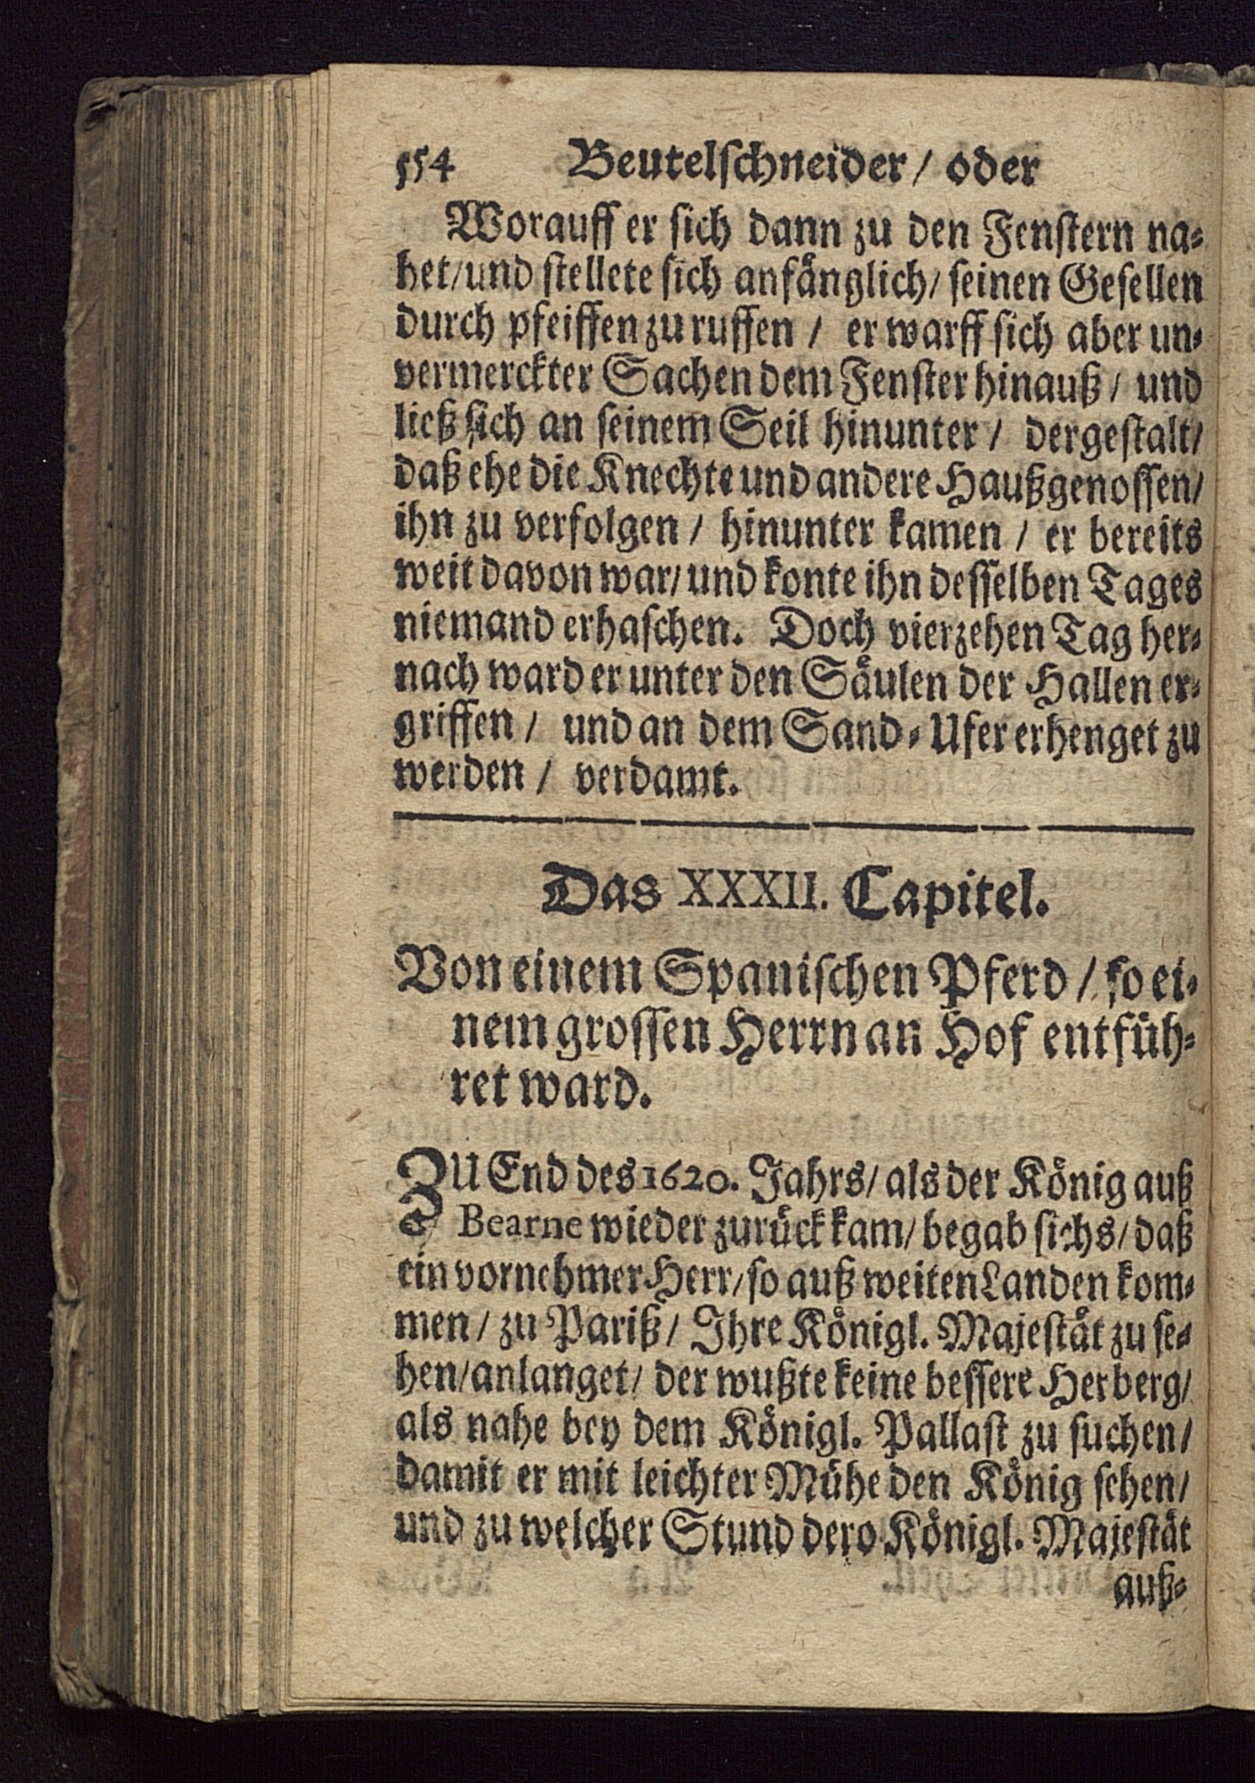 554 Beutelſchneider / oder
Worauff er ſich dann zu den Fenſtern na⸗
het / und ſtellete ſich anfaͤnglich / ſeinen Geſellen
durch pfeiffen zu ruffen / er warff ſich aber un⸗
vermerckter Sachen dem Fenſter hinauß / und
ließ ſich an ſeinem Seil hinunter / dergeſtalt /
daß ehe die Knechte und andere Haußgenoſſen /
ihn zu verfolgen / hinunter kamen / er bereits
weit davon war / und konte ihn deſſelben Tages
niemand erhaſchen. Doch vierzehen Tag her⸗
nach ward er unter den Saͤulen der Hallen er⸗
griffen / und an dem Sand⸗Ufer erhenget zu
werden / verdamt.
Das XXXII. Capitel.
Von einem Spaniſchen Pferd / ſo ei⸗
nem groſſen Herrn an Hof entfuͤh⸗
ret ward.
ZU End des 1620. Jahrs / als der Koͤnig auß
Bearne wieder zuruͤck kam / begab ſichs / daß
ein vornehmer Herr / ſo auß weiten Landen kom⸗
men / zu Pariß / Ihre Koͤnigl. Majeſtaͤt zu ſe⸗
hen / anlanget / der wußte keine beſſere Herberg /
als nahe bey dem Koͤnigl. Pallaſt zu ſuchen /
damit er mit leichter Muͤhe den Koͤnig ſehen /
und zu welcher Stund dero Koͤnigl. Majeſtaͤt
auß⸗